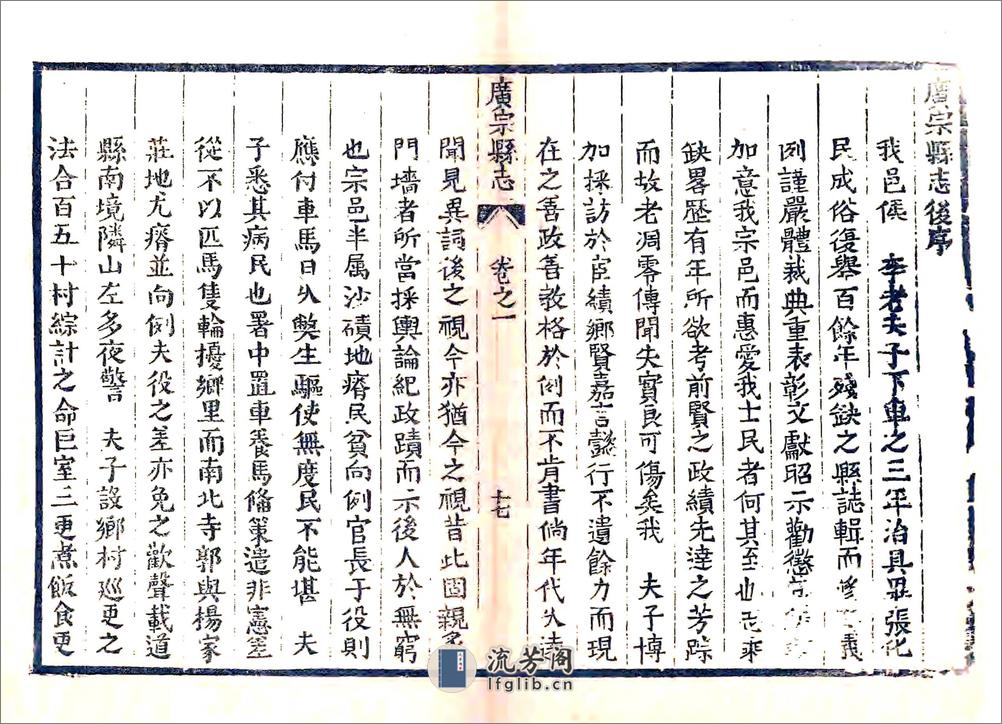 廣宗縣志後序
我邑侯　李老夫子下車之三年治具畢張化
民成俗復舉百餘年殘缺之縣誌輯而修義
例謹嚴體裁典重表彰文獻昭示勸懲
加意我宗邑而惠愛我士民者何其至也志乘
缺畧歷有年所欲考前賢之政績先達之芳踪
而故老凋零傳聞失實良可傷矣我　夫子博
加採訪於宦績鄉賢嘉言懿行不遺餘力而現
在之善政善教格於例而不肯書倘年代久遠
廣宗縣志　卷之一　十七
聞見異詞後之視今亦猶今之視昔此固親炙
門墻者所當採輿論紀政蹟而示後人於無窮
也宗邑半属沙磧地瘠民貧向例官長于役則
應付車馬日久獘生驅使無度民不能堪　夫
子悉其病民也署中置車養馬脩策遣非憲差
從不以匹馬隻輪擾鄉里而南北寺郭與楊家
莊地尤瘠並向例夫役之差亦免之歡聲載道
縣南境隣山左多夜警　夫子設鄉村巡更之
法合百五十村綜計之命巨室三更煮飯食更
流芳阁
lfglib.cn